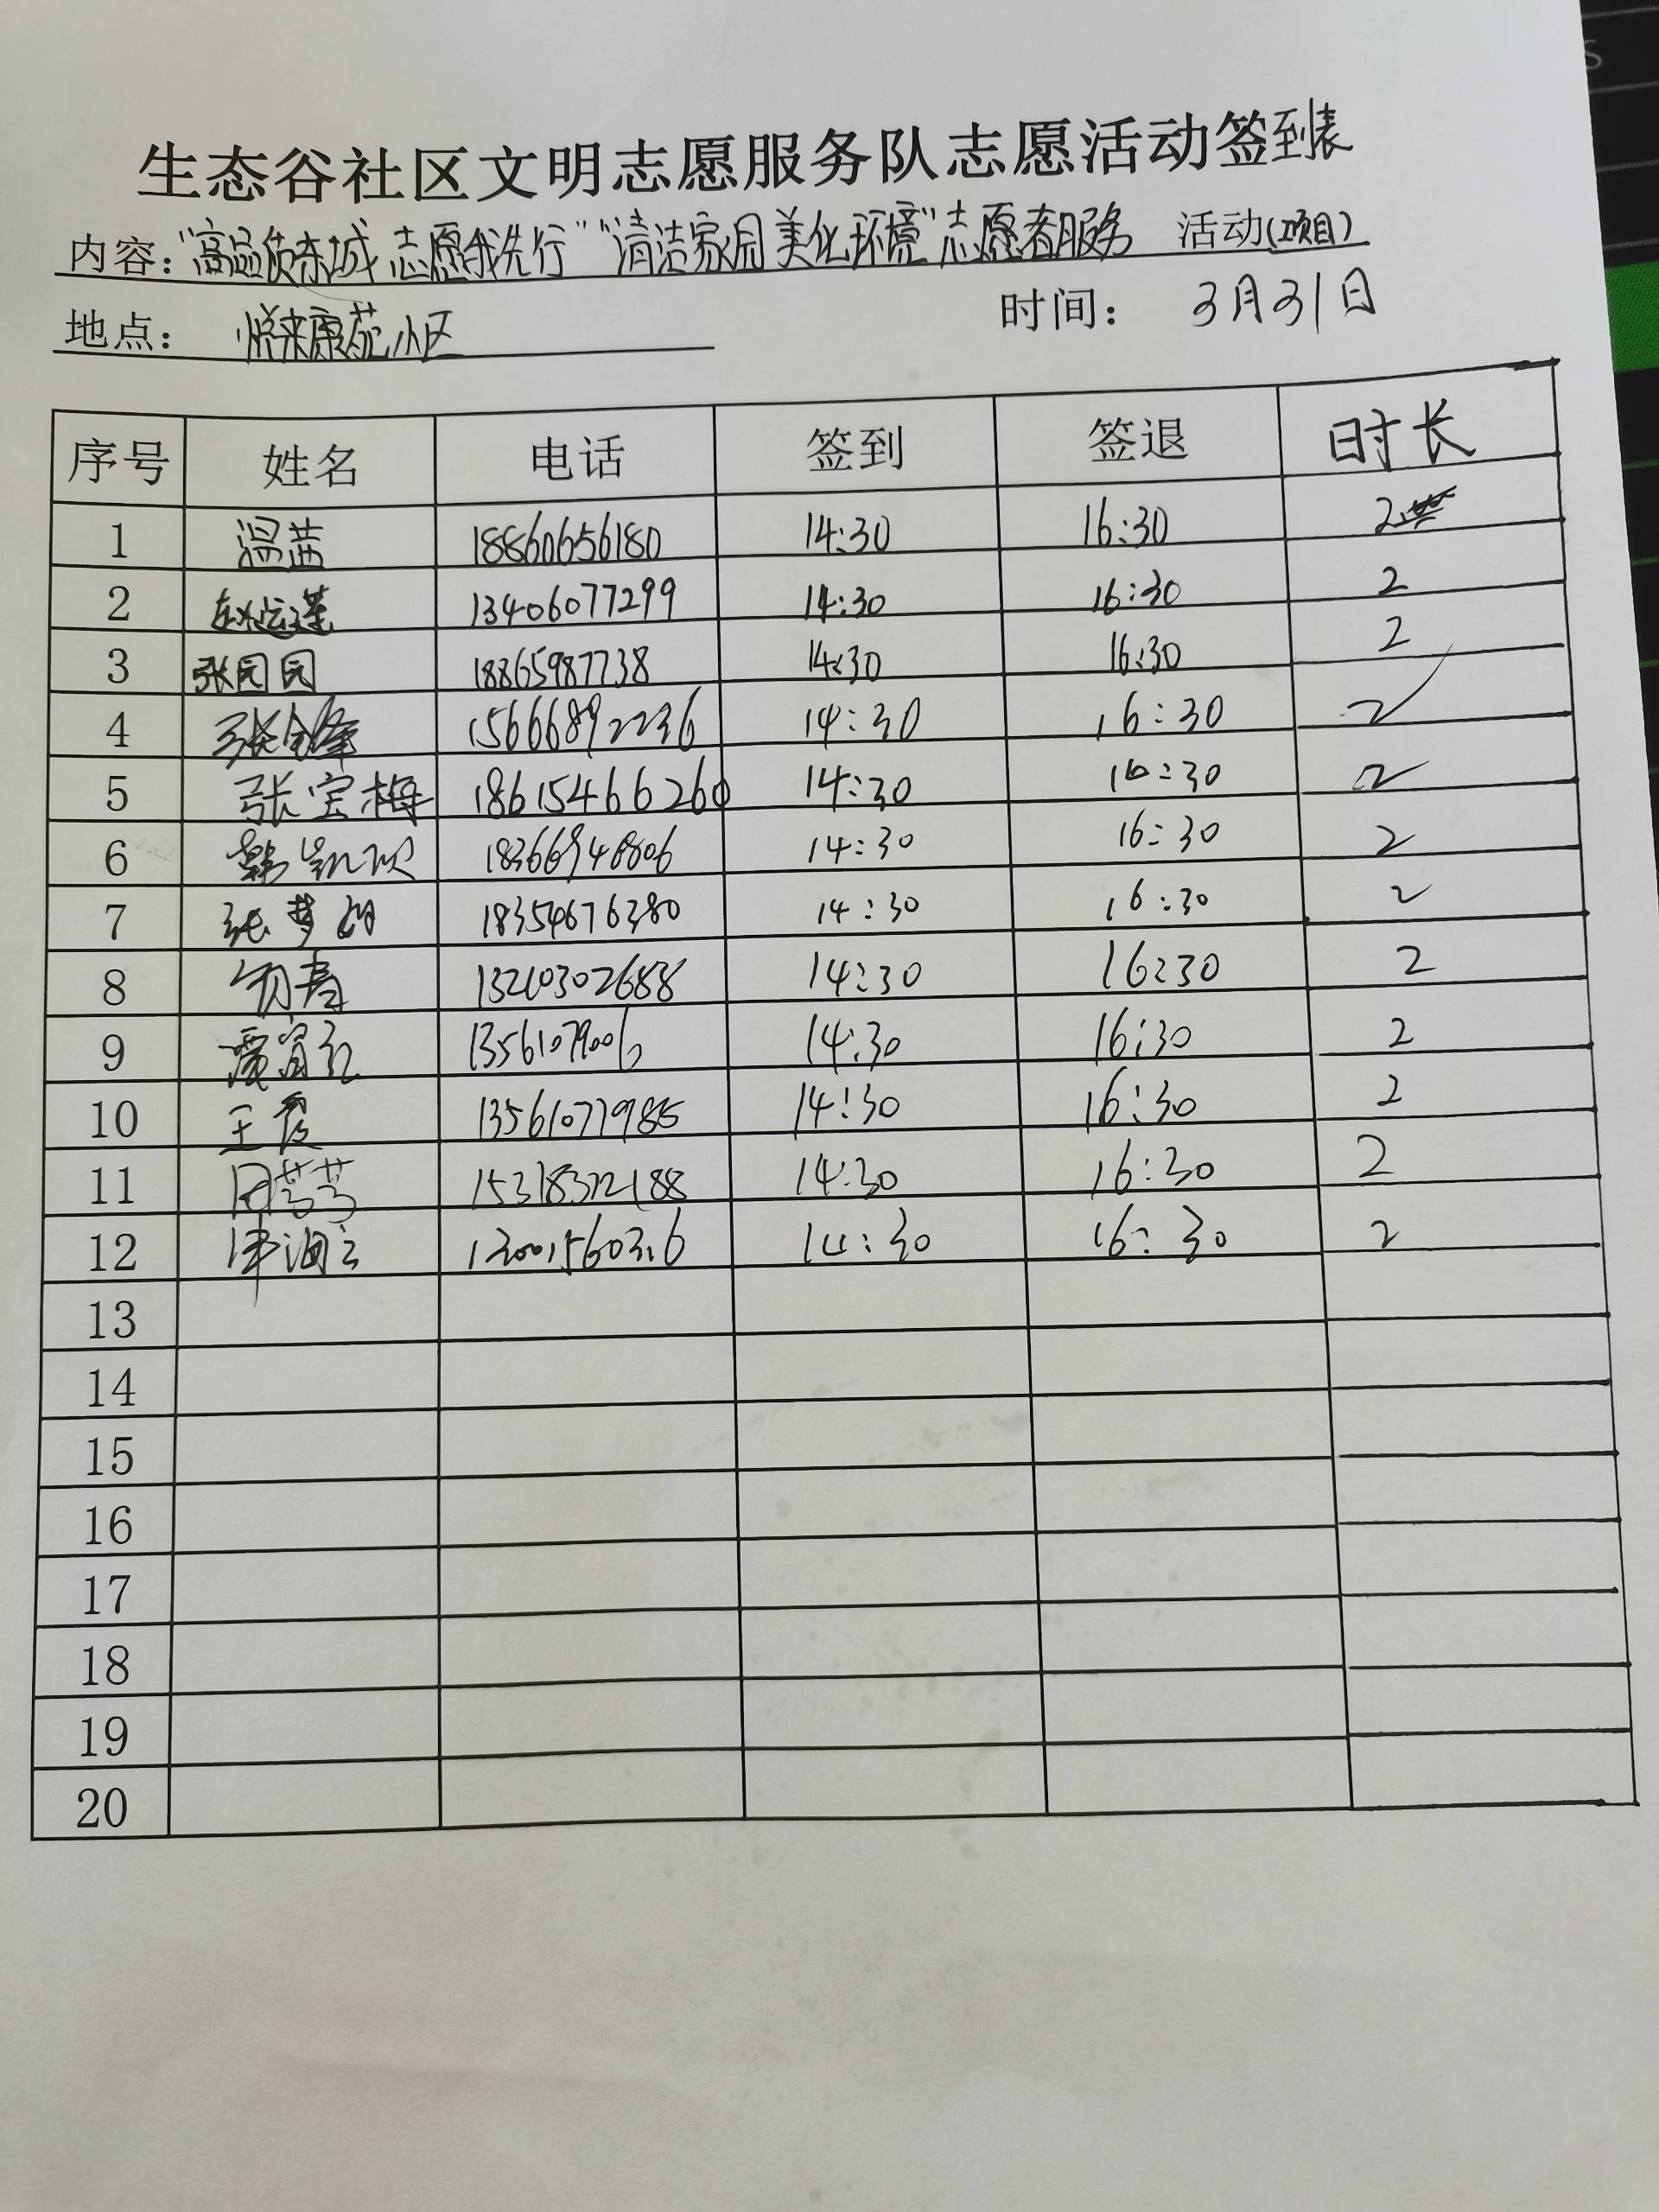 生态谷社区文明志愿服务队志愿活动签到表
内容：“高品质东城 志愿我先行”“清洁家园 美化环境”志愿者服务 活动(项目)
地点： 悦来康苑小区 时间： 3月31日
序号 姓名 电话 签到 签退 时长
1 温茜 18860656180 14:30 16:30 2
2 赵运莲 13406077299 14:30 16:30 2
3 张园园 18865987738 14:30 16:30 2
4 15666892236 14:30 16:30 2
5 张宝梅 18615466260 14:30 16:30 2
6 14:30 16:30 2
7 18354676380 14:30 16:30 2
8 14:30 16:30 2
9 14:30 16:30 2
10 王霞 14:30 16:30 2
11 14:30 16:30 2
12 14:30 16:30 2
13
14
15
16
17
18
19
20